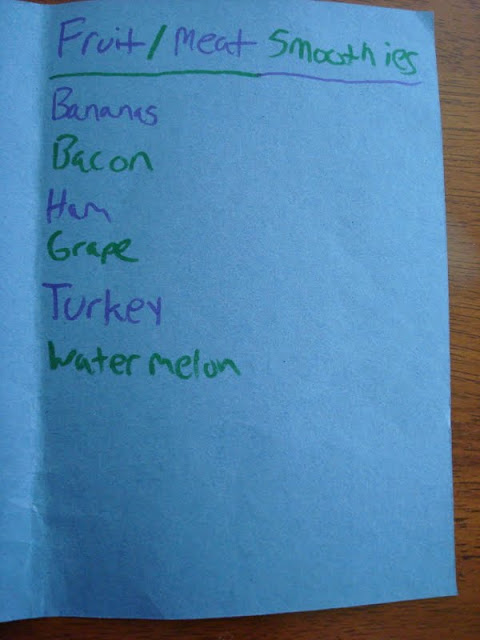 Fruit/Meat Smoothies
Bananas
Bacon
Ham
Grape
Turkey
Watermelon